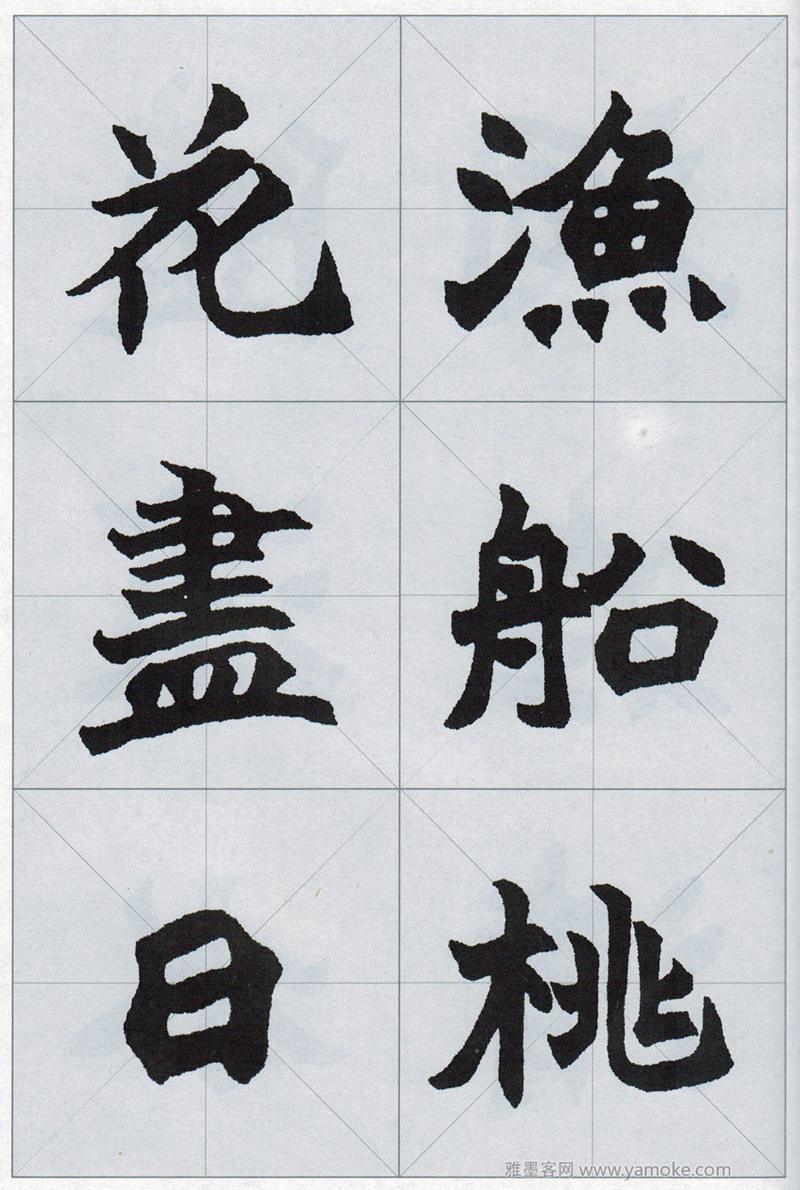 漁船桃
花盡日
雅墨客网 www.yamoke.com